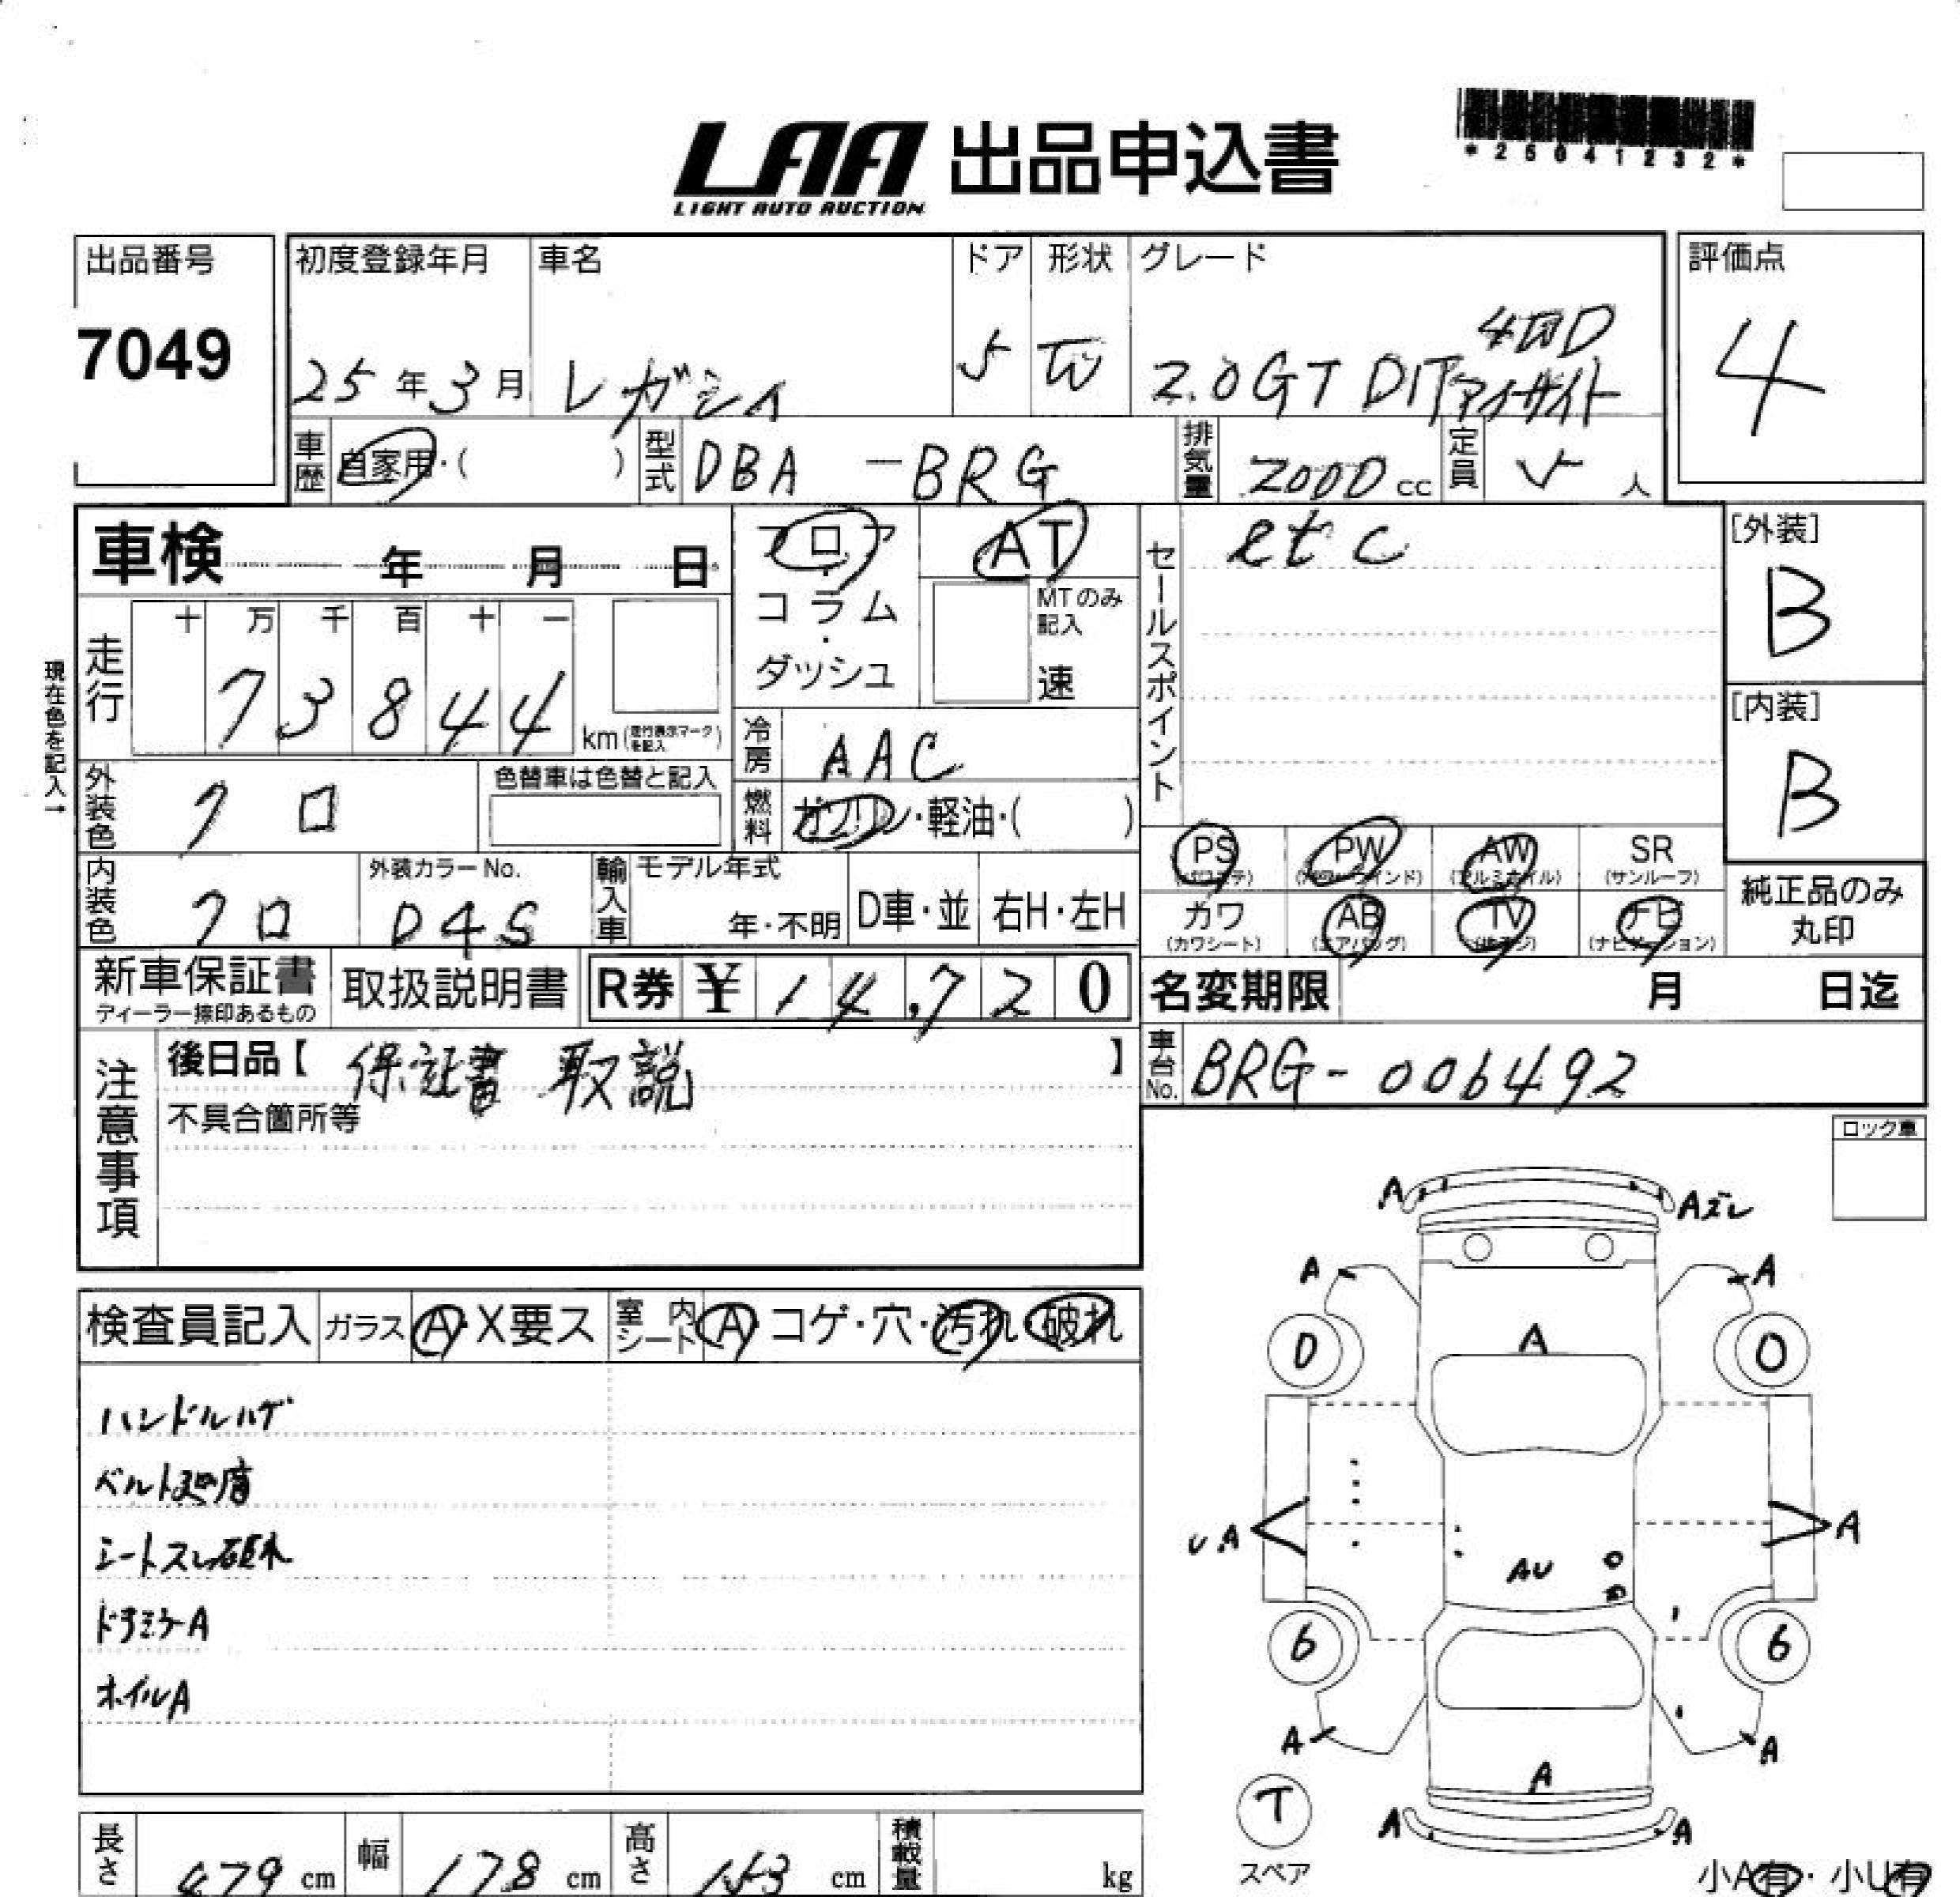 LAA 出品申込書
LIGHT AUTO AUCTION
*26041232*
出品番号 初度登録年月 車名 ドア 形状 グレード 評価点
7049 25年3月 レガシィ 5 W 2.0GT DIT アイサイト 4WD 4
車歴 自家用・( ) 型式 DBA -BRG 排気量 2000cc 定員 5人
車検 年 月 日 フロア・コラム・ダッシュ AT
MTのみ記入 速
セールスポイント etc
[外装] B
走行 十 万 千 百 十 一
73844 km(走行表示マークを記入)
現在色を記入→
冷房 AAC
[内装] B
外装色 クロ 色替車は色替と記入
燃料 ガソリン・軽油・( )
PS(パワステ) PW(パワーウインド) AW(アルミホイル) SR(サンルーフ)
内装色 クロ 外装カラーNo. D4S 輸入車 モデル年式 年・不明 D車・並 右H・左H
カワ(カワシート) AB(エアバッグ) TV(地デジ) ナビ(ナビゲーション) 純正品のみ丸印
新車保証書 ディーラー捺印あるもの 取扱説明書 R券 ¥14,720 名変期限 月 日迄
注意事項 後日品【 保証書 取説 】
車台No. BRG-006492
不具合箇所等
ロック車
検査員記入 ガラス A・X要ス 室内シート A・コゲ・穴・汚れ・破れ
ハンドルハゲ
シートスレ破れ
ドアミラーA
ホイルA
A Aズレ
A A
A
A
AU
6 6
A A
A
T
A A
スペア
小A有・小U有
長さ 479cm 幅 178cm 高さ 153cm 積載量 kg